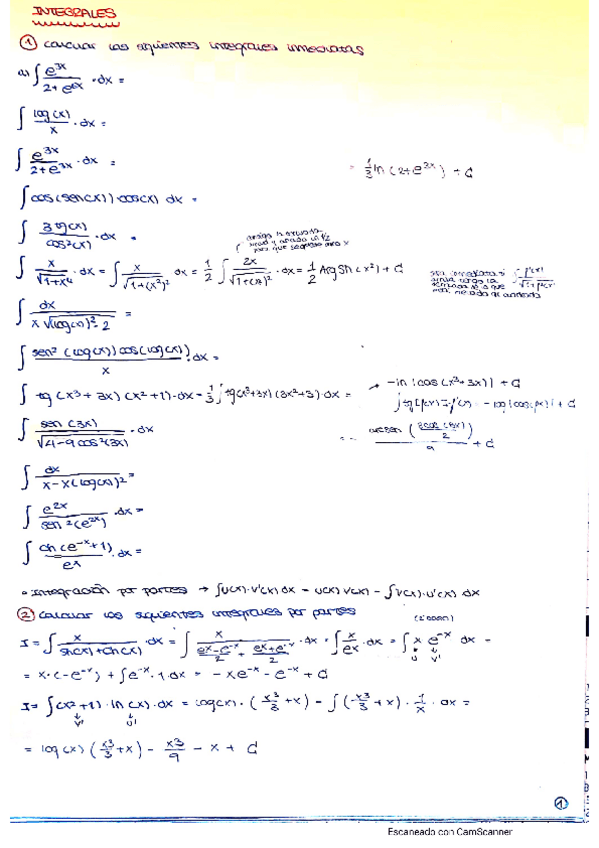 INTEGRALES
① Calcular las siguientes integrales inmediatas
a) ∫ e^{3x}/(2+e^{6x}) · dx =
∫ log(x)/x · dx =
∫ e^{3x}/(2+e^{3x}) · dx = = 1/3 ln(2+e^{3x}) + C
∫ cos(sen(x)) cos(x) dx =
∫ 3 tg(x)/cos²(x) · dx =
∫ x/√(1+x⁴) · dx = ∫ x/√(1+(x²)²) dx = 1/2 ∫ 2x/√(1+(x²)²) · dx = 1/2 ArgSh(x²) + C
∫ dx/(x√(log(x)²-2)) =
∫ sen²(log(x)) cos(log(x))/x · dx =
∫ tg(x³+3x)(x²+1) · dx = 1/3 ∫ tg(x³+3x)(3x²+3) dx = → -ln|cos(x³+3x)| + C
∫ tg(f(x)) · f'(x) = -log|cos f(x)| + C
∫ sen(3x)/√(4-9cos²(3x)) · dx = ... arcsen(3cos(3x)/2)/9 + C
∫ dx/(x-x(log(x))²) =
∫ e^{2x}/sen²(e^{2x}) · dx =
∫ ch(e^{-x}+1)/e^x · dx =
• Integración por partes → ∫u(x)·v'(x) dx = u(x) v(x) - ∫v(x)·u'(x) dx
② Calcular las siguientes integrales por partes
I = ∫ x/(sh(x)+ch(x)) · dx = ∫ x/((e^x-e^{-x})/2 + (e^x+e^{-x})/2) · dx = ∫ x/e^x · dx = ∫ x e^{-x} dx =
u v'
= x·(-e^{-x}) + ∫e^{-x} · 1 dx = -xe^{-x} - e^{-x} + C
I = ∫(x²+1) · ln(x) · dx = log(x) · (x³/3+x) - ∫(x³/3+x) · 1/x · dx =
v' u
= log(x)(x³/3+x) - x³/9 - x + C
①
Escaneado con CamScanner